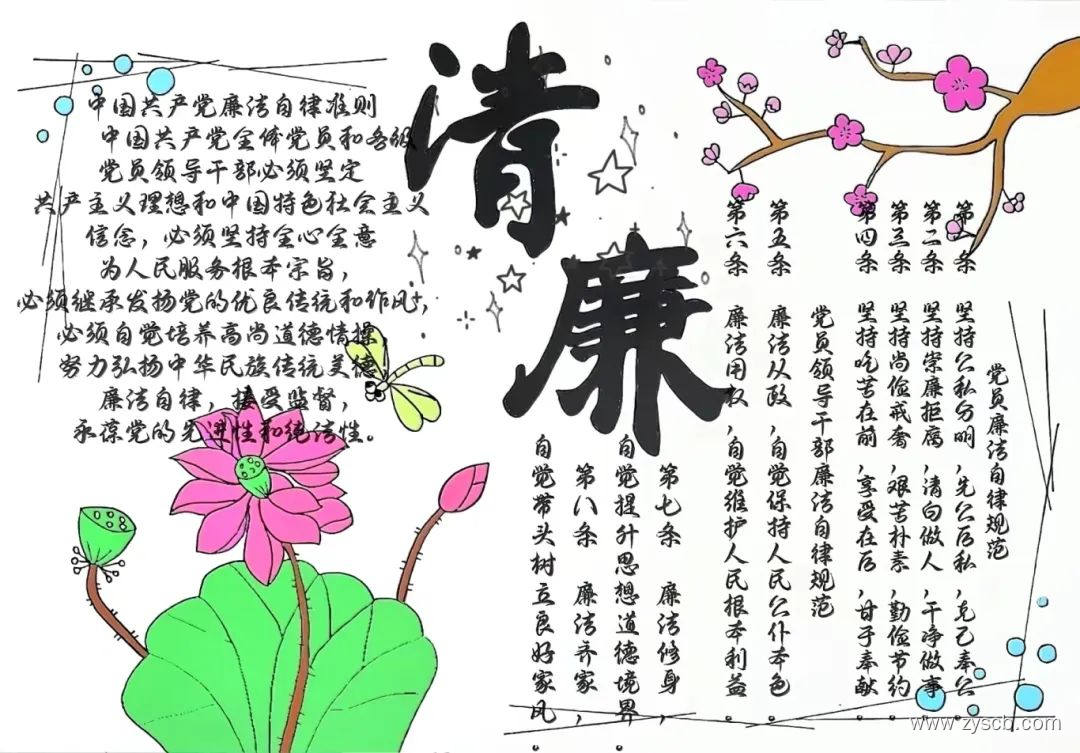 清
廉
中国共产党廉洁自律准则
中国共产党全体党员和各级
党员领导干部必须坚定
共产主义理想和中国特色社会主义
信念，必须坚持全心全意
为人民服务根本宗旨，
必须继承发扬党的优良传统和作风，
必须自觉培养高尚道德情操，
努力弘扬中华民族传统美德，
廉洁自律，接受监督，
永葆党的先进性和纯洁性。
党员廉洁自律规范
第一条 坚持公私分明，先公后私，克己奉公。
第二条 坚持崇廉拒腐，清白做人，干净做事。
第三条 坚持尚俭戒奢，艰苦朴素，勤俭节约。
第四条 坚持吃苦在前，享受在后，甘于奉献。
党员领导干部廉洁自律规范
第五条 廉洁从政，自觉保持人民公仆本色。
第六条 廉洁用权，自觉维护人民根本利益。
第七条 廉洁修身，
自觉提升思想道德境界。
第八条 廉洁齐家，
自觉带头树立良好家风。
www.zyscb.com